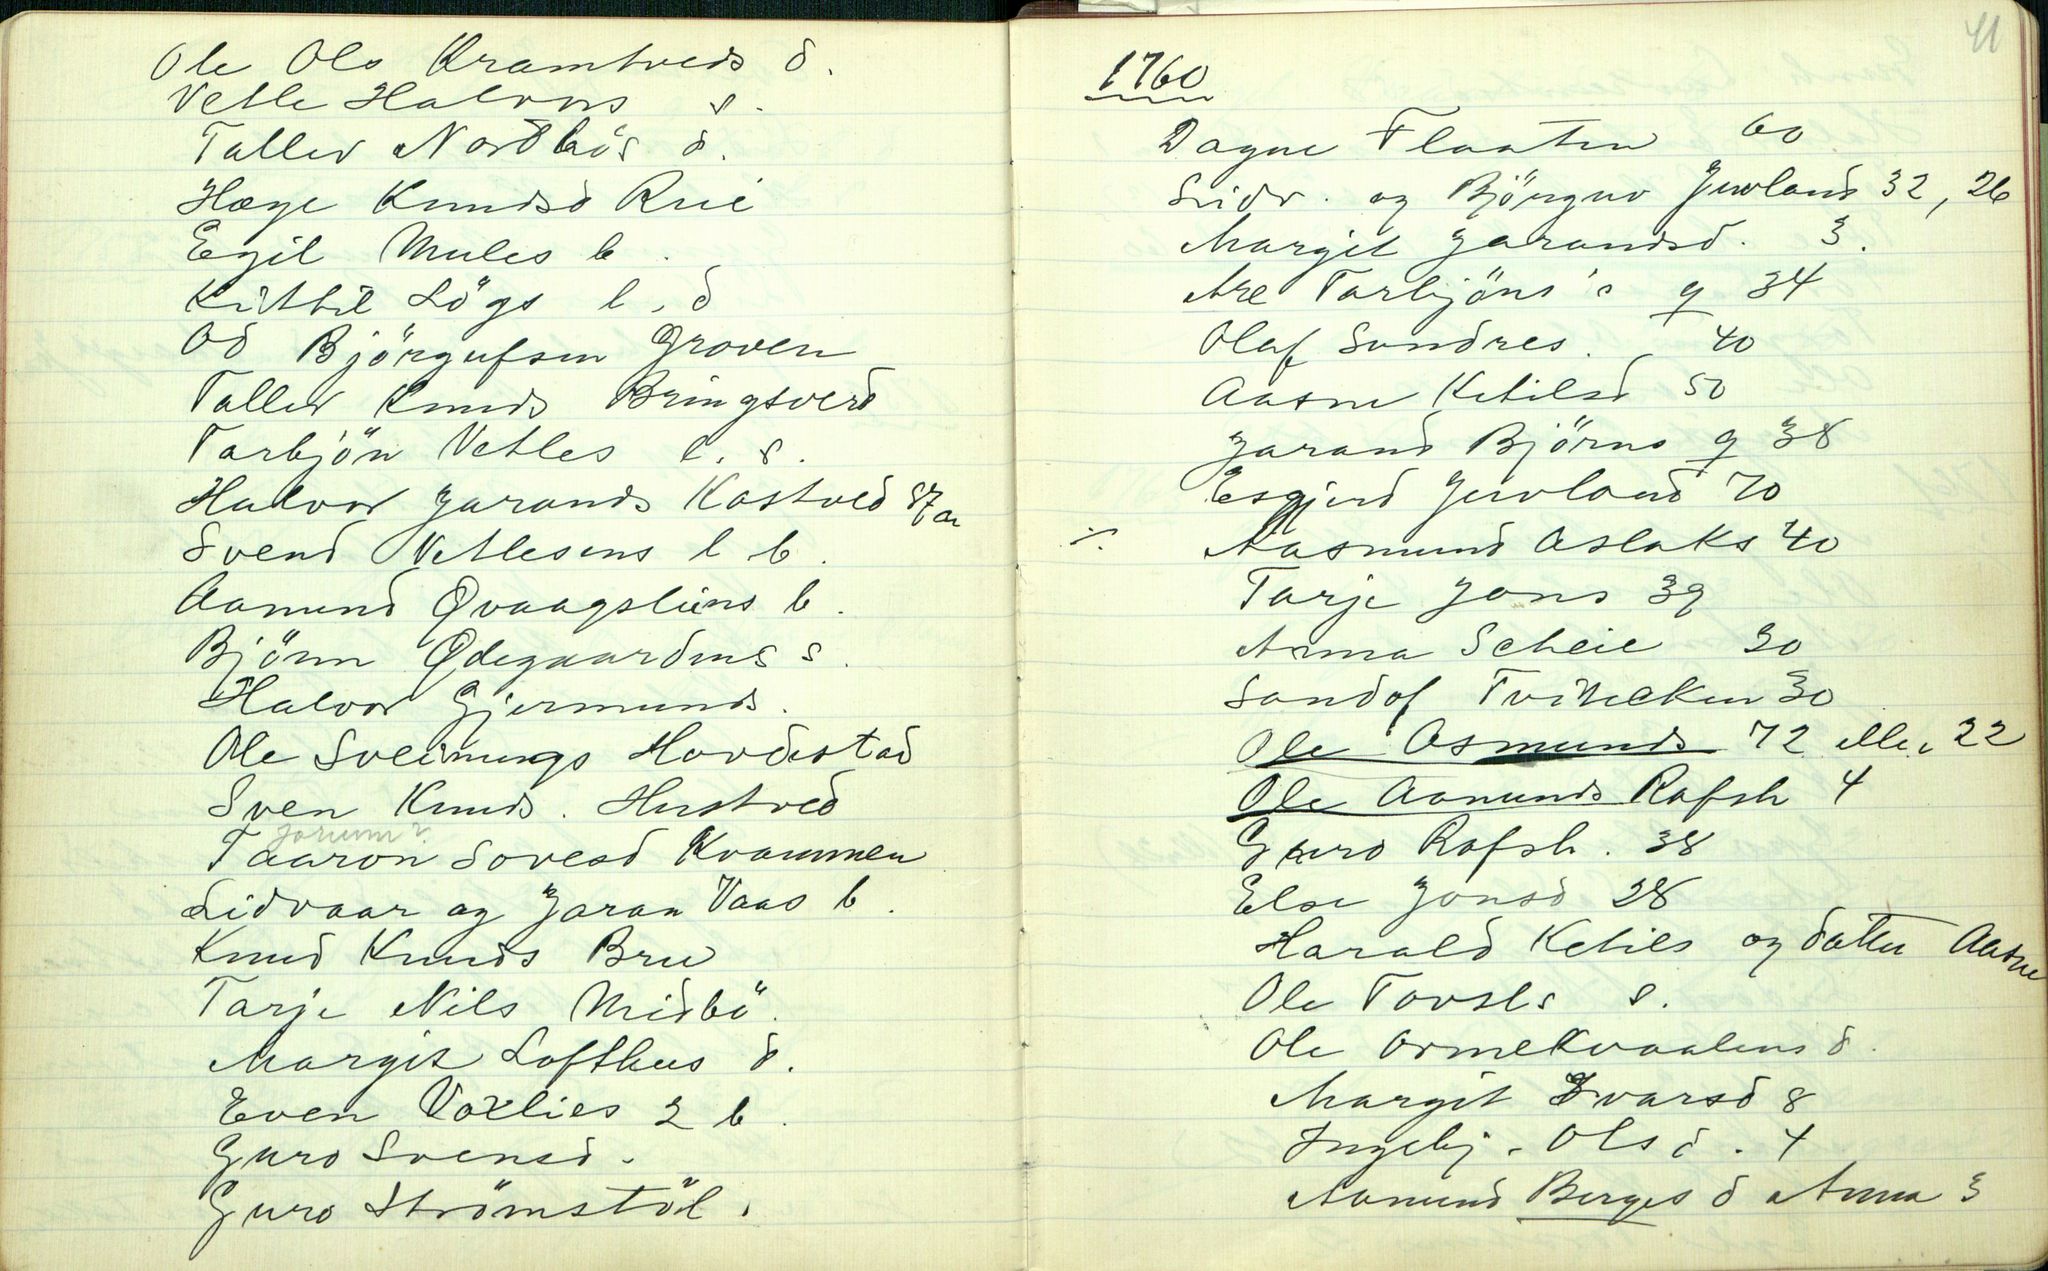 Ole Ols Kramtveds d.
Vetle Halvors s.
Tallev Nordbös d.
Hæge Knudsd Rui
Egil Mules b.
Kittil Lögs l. d
Od Björgufsen Groven
Tallev Knuds Bringsverd
Tarbjön Vetles l. s.
Halvor Jarands Kostved 87 a
Svend Vetlesens l b.
Aamund Qvaagsliens b.
Björn Ødegaardens s.
Halvor Gjermunds.
Ole Sveinungs Hovdestad
Sven Knuds. Hustved
Jorum?
Taaron Sovesd Kvammen
Lidvaar og Jaran Vaas b.
Knud Knuds Bru
Tarje Nils Midbö.
Margit Lofthus d.
Even Voxlies 2 b.
Guro Svensd.
Guro Strömstöl.
41
1760
Dagne Flaaten 60
og Björguv Juvland 32, 26
Margit Jarandsd. 3.
Are Tarbjöns g 34
Olaf Sondres. 40
Aasne Ketilsd 50
Jarand Björns g 38
Esgjerd Juvland 70
Aasmund Aslaks 40
Tarje Jons 39
Anna Scheie 30
Sondof 30
Ole Asmunds 72 eller 22
Ole Aanunds Rafsh 4
Guro Rafsh. 38
Else Jonsd 28
Harald Ketils og datter Aasne
Ole Tovsls s.
Ole Ormekvaalens d.
Margit Ivarsd 8
Ingebj. Olsd. 4
Aamund Berges d Anna 3